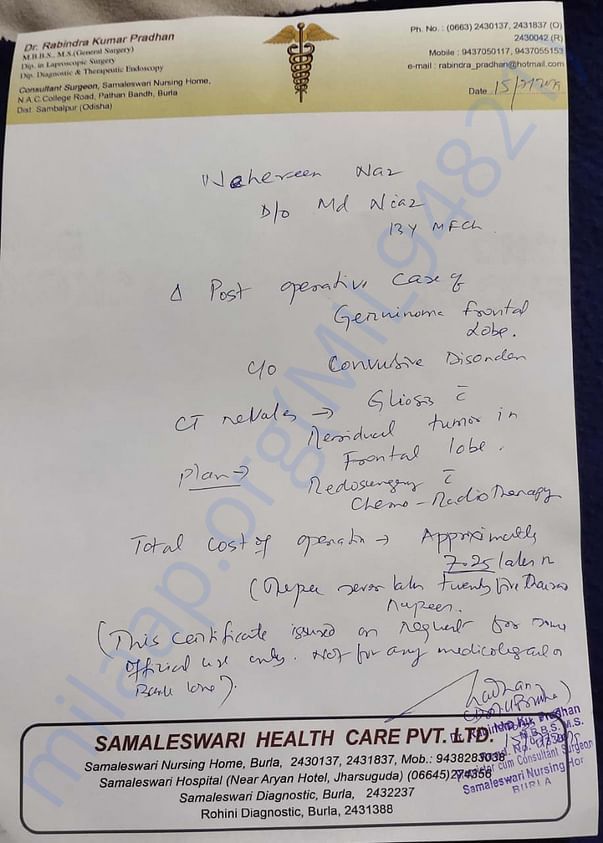 Dr. Rabindra Kumar Pradhan
M.B.B.S., M.S.(General Surgery)
Dip. in Laproscopic Surgery
Dip. Diagnostic & Therapeutic Endoscopy
Consultant Surgeon, Samaleswari Nursing Home,
N.A.C.College Road, Pathan Bandh, Burla
Dist. Sambalpur (Odisha)
Ph. No. : (0663) 2430137, 2431837 (O)
2430042 (R)
Mobile : 9437050117, 9437055153
e-mail : rabindra_pradhan@hotmail.com
Date 15/
Naz
D/o Md Niaz
13Y MFCh.
Δ Post operative Case of
Germinoma frontal
Lobe.
C/o Convulsive Disorder
CT → Gliosis c̄
Residual tumor in
Frontal lobe.
Plan → Redosurgery c̄
Chemo-RadioTherapy
Total Cost of → Approximately
7.25 lakh
(Rupee seven lakh twenty five
rupees.
(This certificate issued on request for some
official use only. Not for any medicolegal or
Bank).
milaap.org(Mil_9482
SAMALESWARI HEALTH CARE PVT. LTD.
Samaleswari Nursing Home, Burla, 2430137, 2431837, Mob.: 9438285038
Samaleswari Hospital (Near Aryan Hotel, Jharsuguda) (06645)274356
Samaleswari Diagnostic, Burla, 2432237
Rohini Diagnostic, Burla, 2431388
Pradhan
M.B.B.S, M.S.
cum Consultant Surgeon
Samaleswari Nursing Hor
BURLA